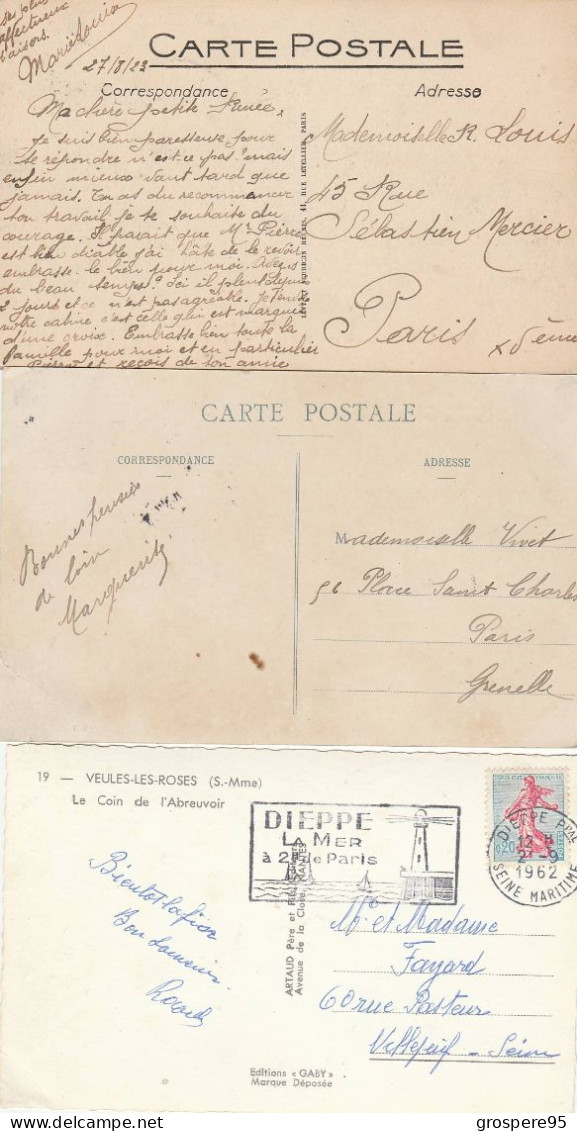 affectueux
baisers.
Marie Louise
27/8/23
CARTE POSTALE
Correspondance
Adresse
Ma chère petite Renée,
Je suis bien paresseuse pour
te répondre n'est ce pas? mais
enfin mieux vaut tard que
jamais. Tu as du recommencer
ton travail je te souhaite du
courage. Il parait que Mr Pierre
est bien diable j'ai hâte de le revoir
embrasse-le bien pour moi. Avez vs
du beau temps? Ici il pleut depuis
2 jours et ce n'est pas agréable.
notre cabine c'est celle qui est marquée
d'une croix. Embrasse bien toute la
famille pour moi et en particulier
Pierre et reçois de ton amie
Mademoiselle R. Louis
45 Rue
Sébastien Mercier
Paris
XVème
CARTE POSTALE
CORRESPONDANCE
ADRESSE
Bonnes pensées
de loin
Marguerite
Mademoiselle Vivet
56 Place Saint Charles
Paris
Grenelle
19 — VEULES-LES-ROSES (S.-Mme)
Le Coin de l'Abreuvoir
DIEPPE
LA MER
à 2H de Paris
0,20
DIEPPE PPAL
12 H
27-9
1962
SEINE MARITIME
ARTAUD Père et Fils, Éditeurs
Avenue de la Close, NANTES
Bon Souvenir
Mr et Madame
Fayard
60 rue Pasteur
Villejuif - Seine
Editions « GABY »
Marque Déposée
www.delcampe.net
grospere95